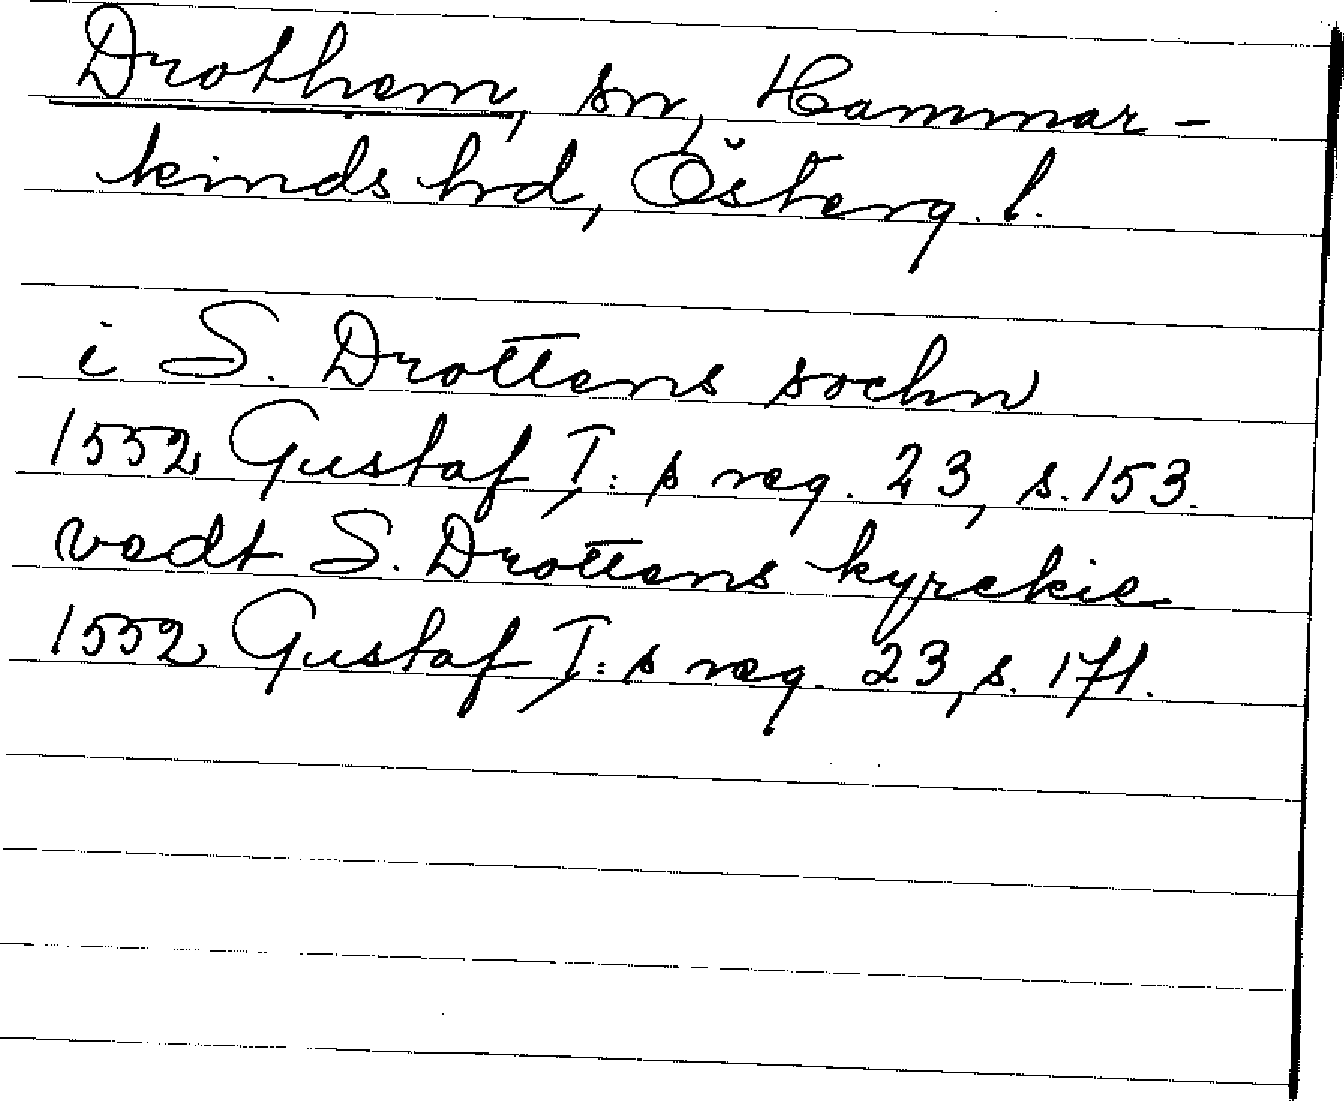 Drothem, sn, Hammar-
kinds hrd, Österg. l.
i S. Drottens sochn
1552 Gustaf I: s reg. 23, s. 153.
vedt S. Drottens kyrckie
1552 Gustaf I: s reg. 23, s. 171.